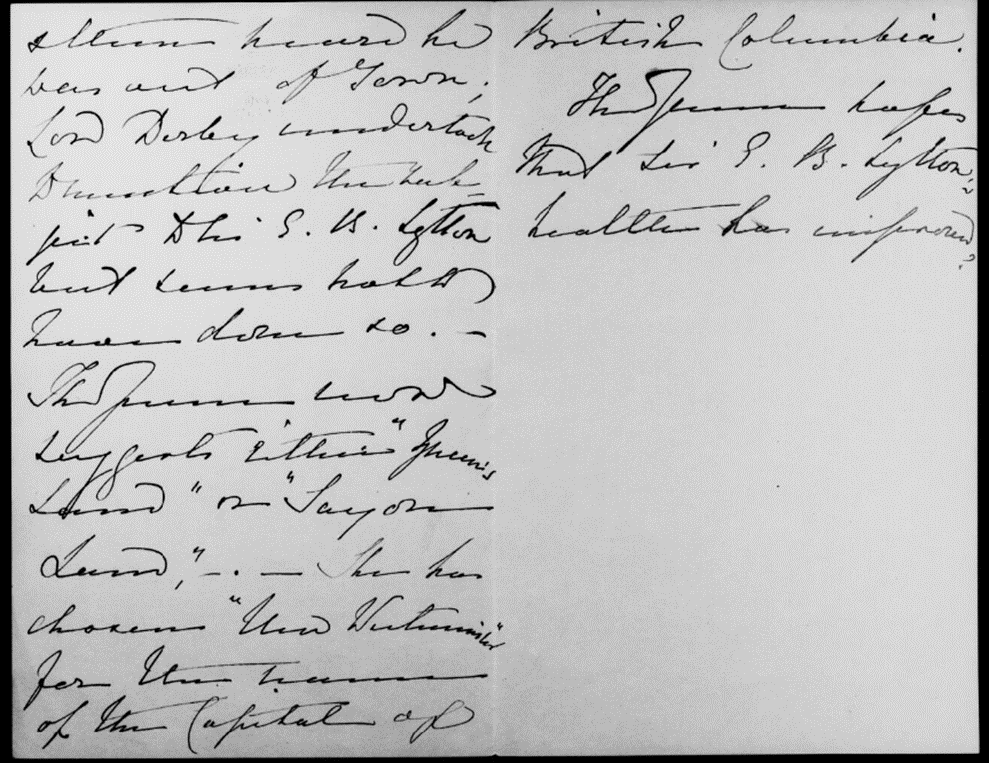 then heard he
was out of Town;
Lord Derby undertook
to mention the sub-
ject to Sir E. B. Lytton
but seems not to
have done so. —
The Queen now
suggests either "Queen's
Land" or
Land", — . — She has
chosen "New Westminster"
for the name
of the Capital of
British Columbia.
The Queen hopes
that Sir E. B. Lytton's
health has improved?